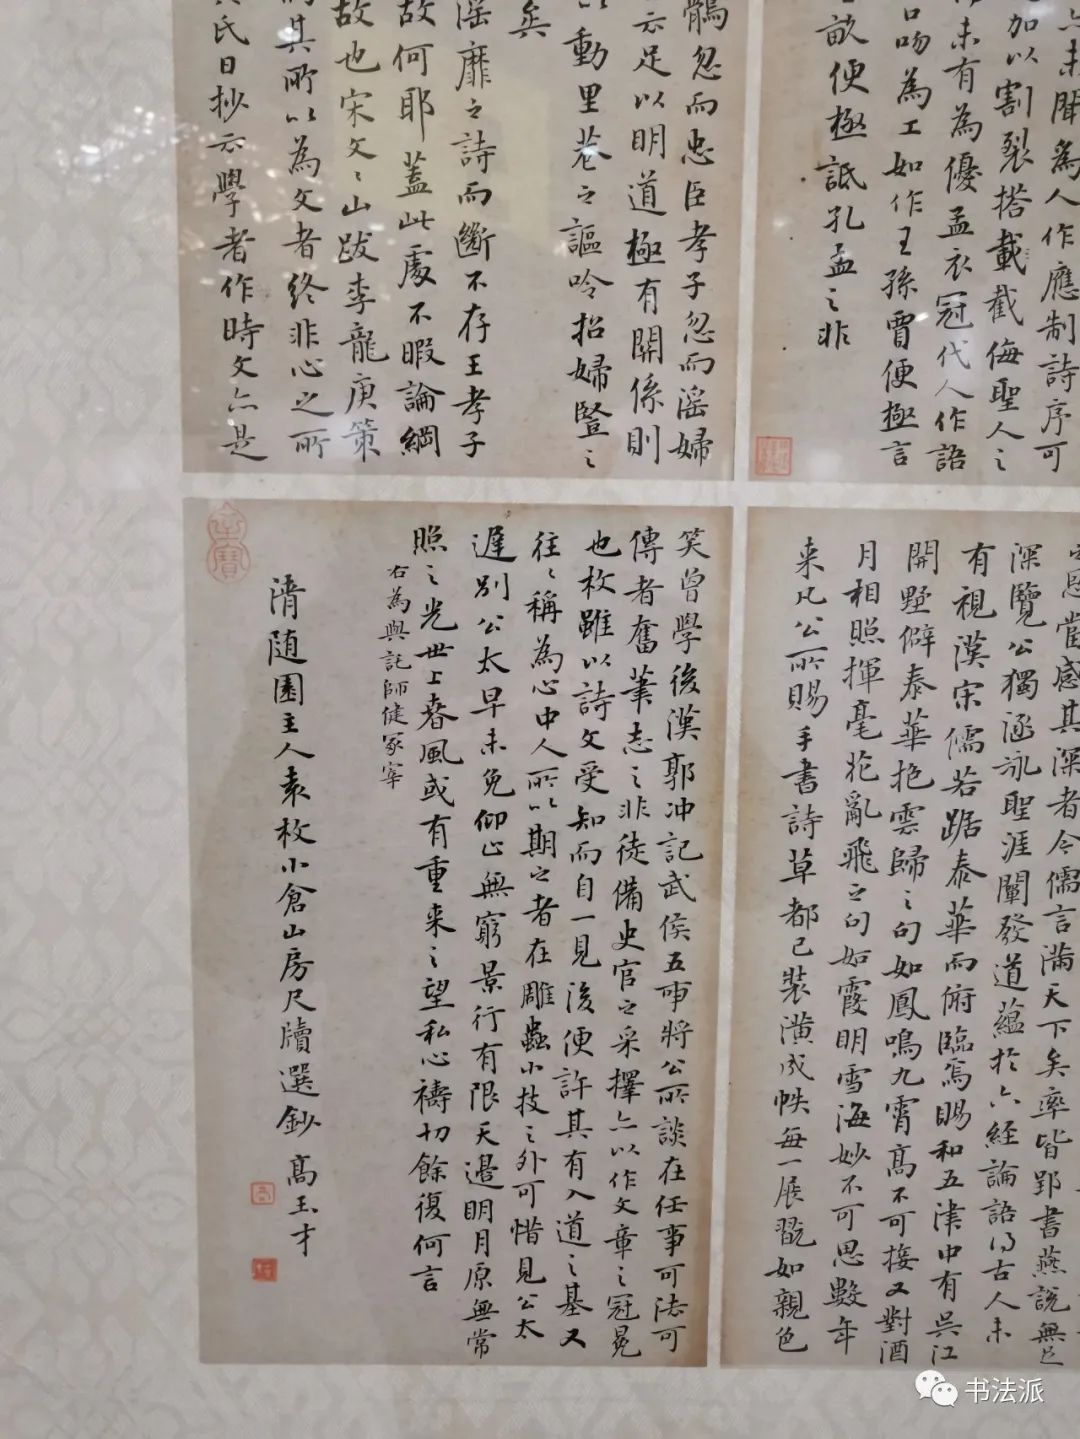 亦未聞為人作應制詩序可
加以割裂搭載截侮聖人之
未有為優孟衣冠代人作語
口吻為工如作王孫賈便極言
便極詆孔孟之非
鶻忽而忠臣孝子忽而淫婦
云足以明道極有關係則
以動里巷之謳吟招婦豎之
矣
淫靡之詩而斷不存王孝子
故何耶蓋此處不暇論綱
故也宋文文山跋李龍庚策
其所以為文者終非心之所
氏日抄云學者作時文亦是
當感其深者今儒言滿天下矣率皆郢書燕說無
深覽公獨涵泳聖涯闡發道蘊於六經論語得古人未
有視漢宋儒若踞泰華而俯臨焉賜和五律中有吳江
開墅僻泰華抱雲歸之句如鳳鳴九霄高不可接又對酒
月相照揮毫花亂飛之句如霞明雪海妙不可思數年
来凡公所賜手書詩草都已裝潢成帙每一展翫如親色
笑曾學後漢郭冲記武侯五事將公所談在任事可法可
傳者奮筆志之非徒備史官之采擇亦以作文章之冠冕
也枚雖以詩文受知而自一見後便許其有入道之基又
往往稱為心中人所以期之者在雕蟲小技之外可惜見公太
遲別公太早未免仰止無窮景行有限天邊明月原無常
照之光世上春風或有重来之望私心禱切餘復何言
右為與託師健冢宰
清随園主人袁枚小倉山房尺牘選鈔 高玉才
书法派